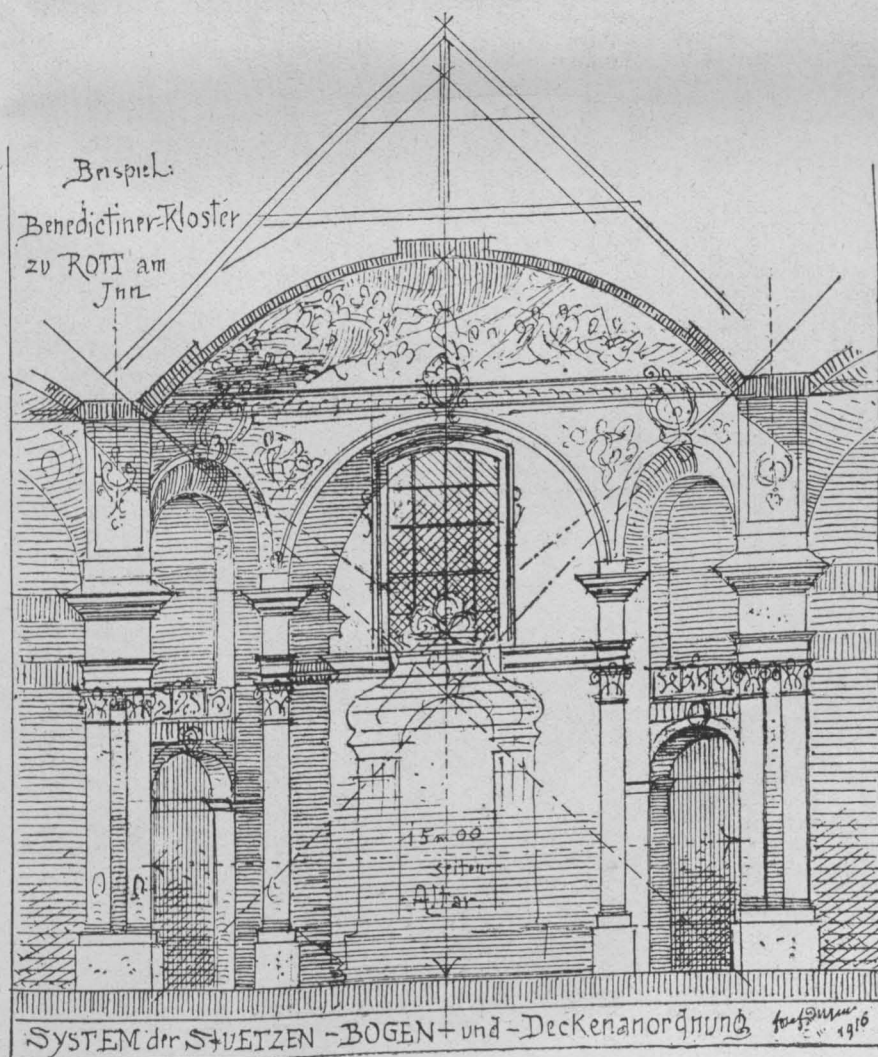 Beispiel:
Benedictiner-Kloster
zu ROTT am
Jnn
15m00
seiten
-Altar.
SYSTEM der STUETZEN -BOGEN + und -Deckenanordnung
1916